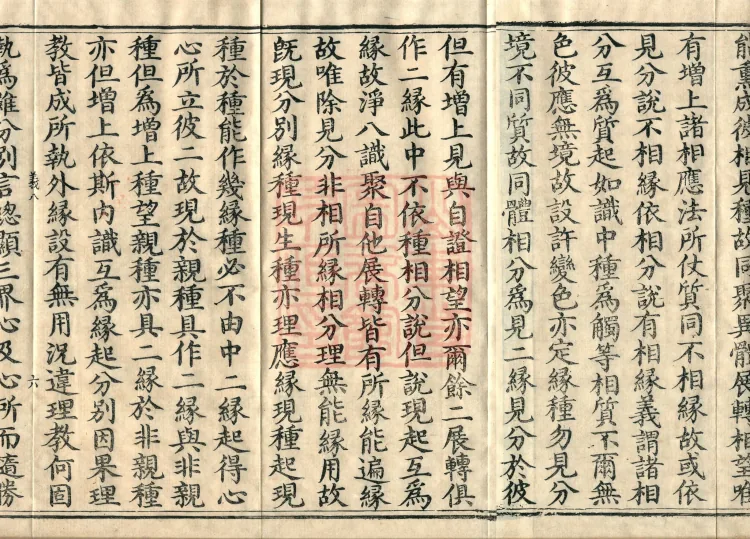 能熏成彼相見種故同聚異體展轉相望唯
有增上諸相應法所仗質同不相緣故或依
見分說不相緣依相分說有相緣義謂諸相
分互爲質起如識中種爲觸等相質不爾無
色彼應無境故設許變色亦定緣種勿見分
境不同質故同體相分爲見二緣見分於彼
但有增上見與自證相望亦爾餘二展轉俱
作二緣此中不依種相分說但說現起互爲
緣故淨八識聚自他展轉皆有所緣能遍緣
故唯除見分非相所緣相分理無能緣用故
旣現分別緣種現生種亦理應緣現種起現
種於種能作幾緣種必不由中二緣起得心
心所立彼二故現於親種具作二緣與非親
種但爲增上種望親種亦具二緣於非親種
亦但增上依斯內識互爲緣起分別因果理
教皆成所執外緣設有無用況違理教何固
義八
六
執爲雖分別言總顯三界心及心所而隨勝